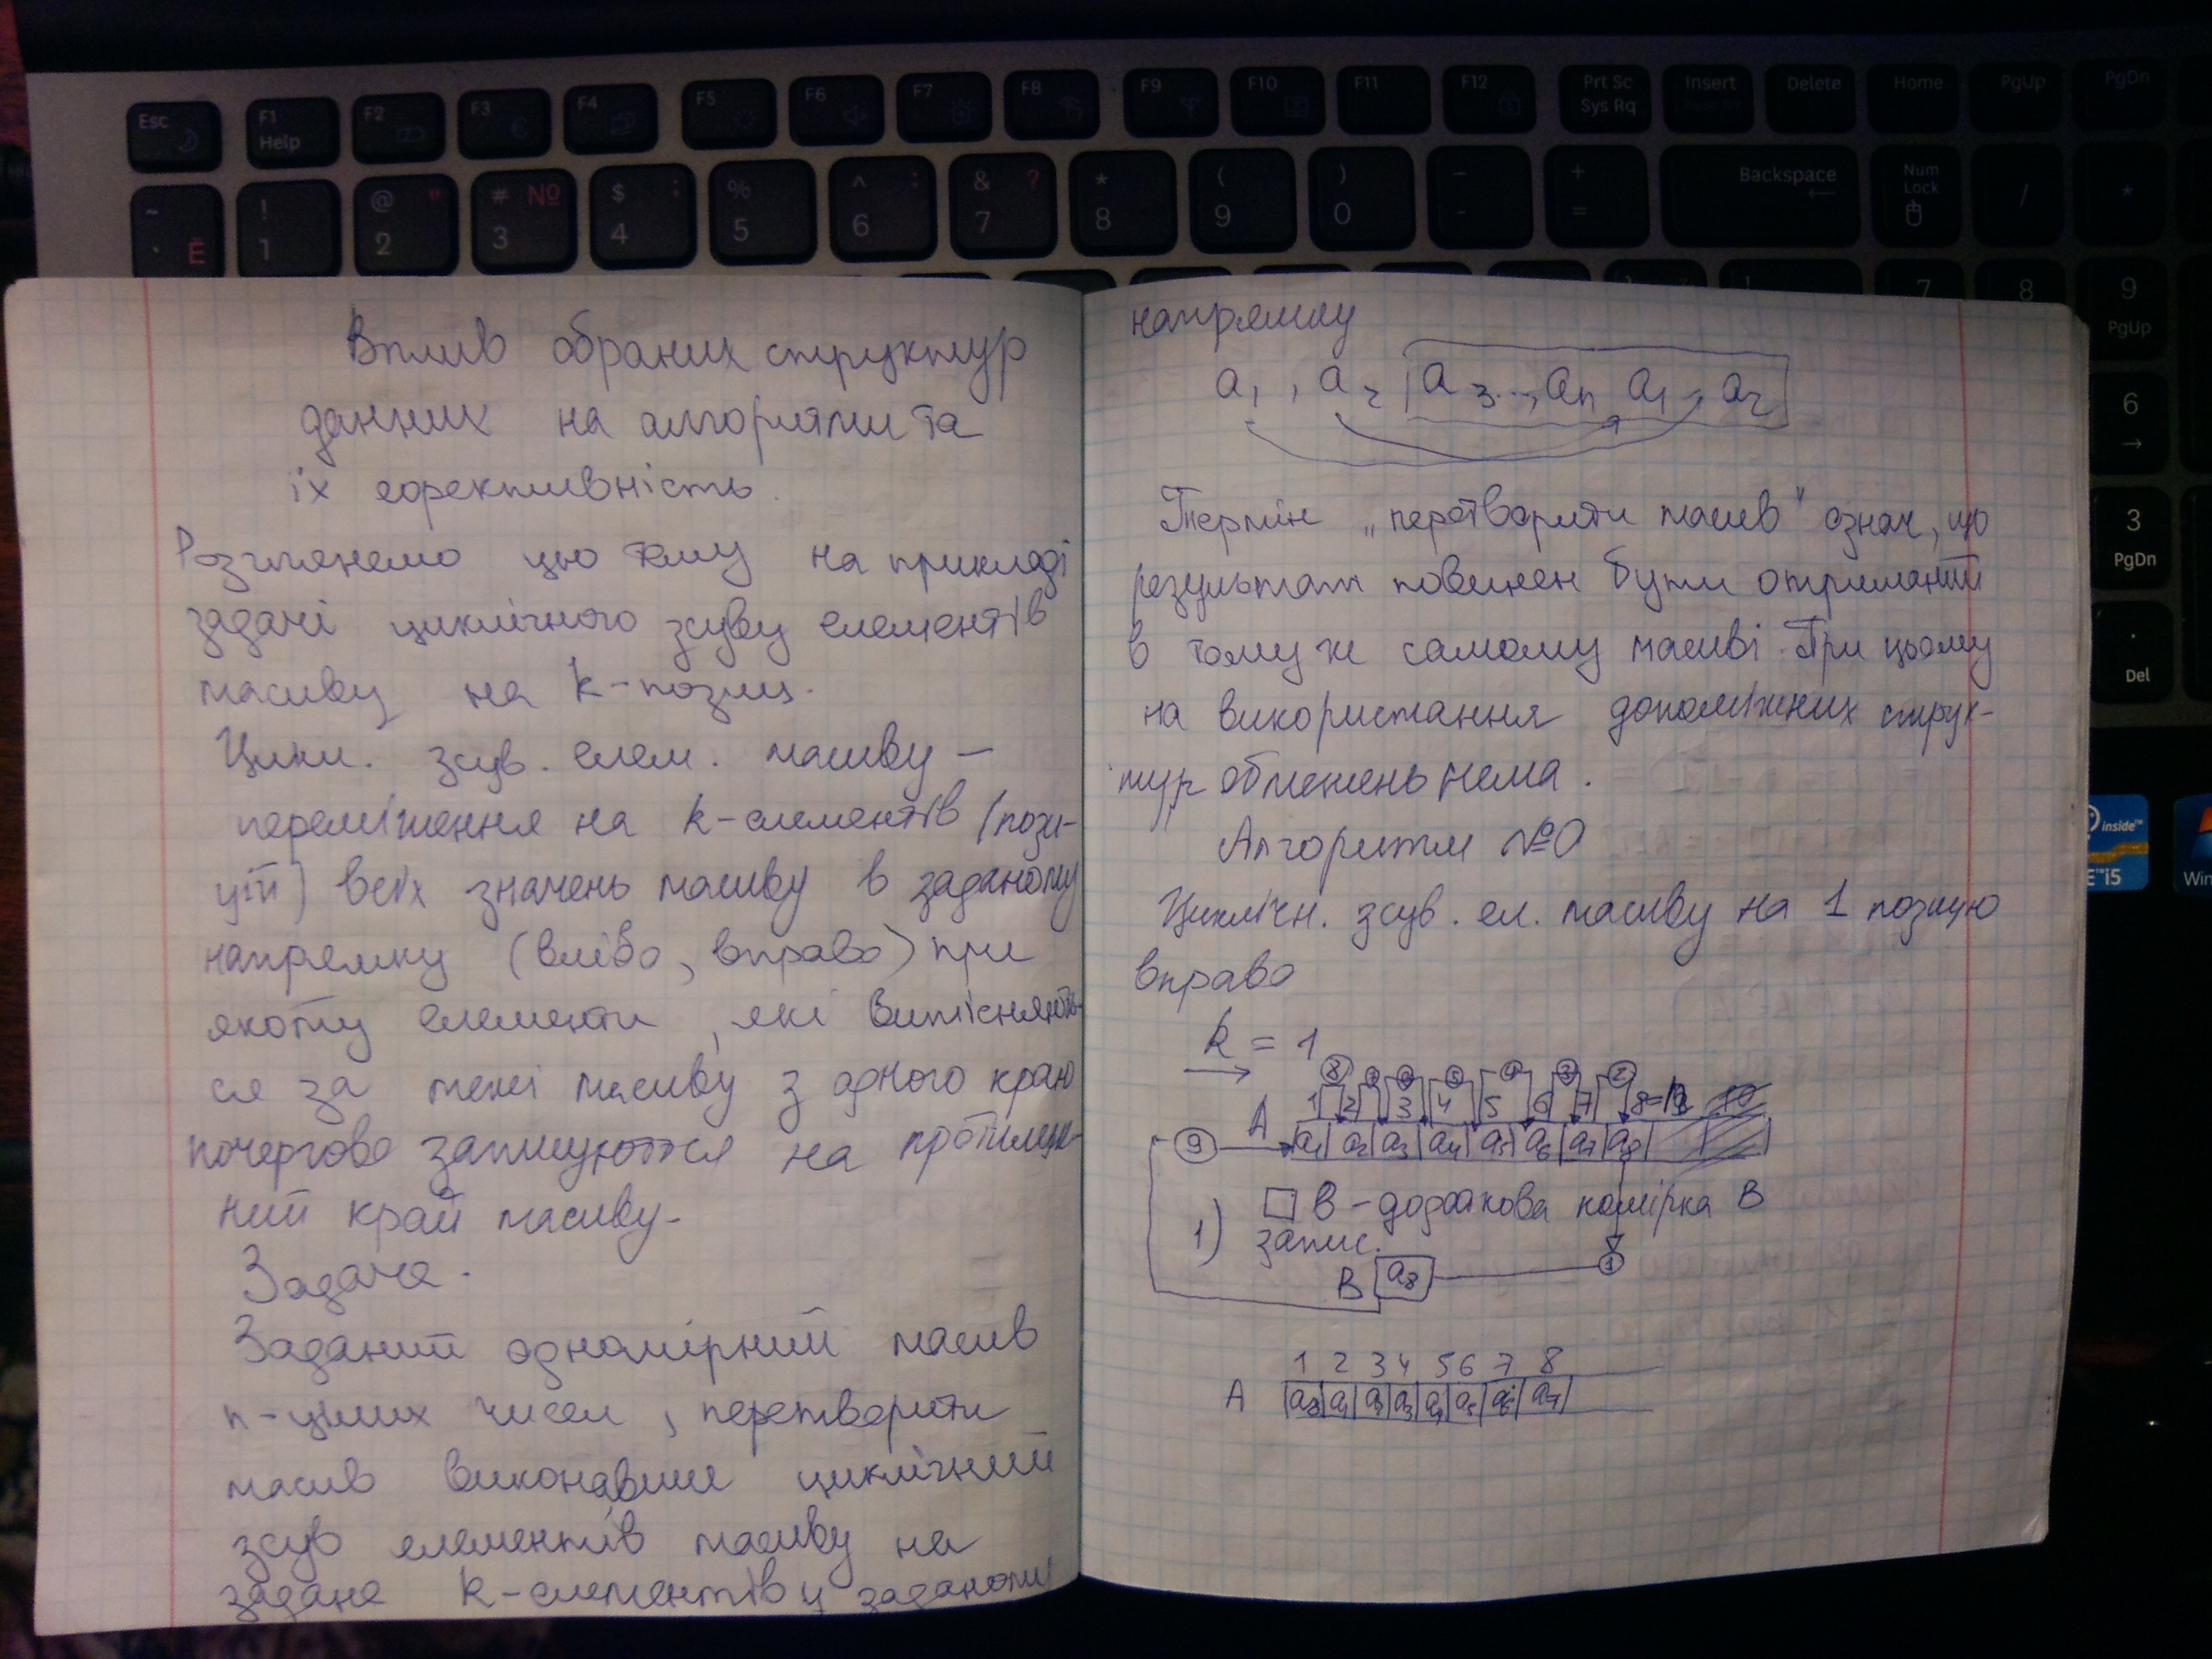 Esc F1 Help F2 F3 F4 F5 F6 F7 F8 F9 F10 F11 F12 Prt Sc Sys Rq Insert Delete Home PgUp PgDn
~ ` Ё ! 1 @ " 2 # № 3 $ ; 4 % 5 ^ : 6 & ? 7 * 8 ( 9 ) 0 - + = Backspace Num Lock / *
7 8 9 PgUp
6
3 PgDn
. Del
inside™
i5
Win
Вплив обраних структур
данних на алгоритми та
їх ефективність.
Розглянемо цю тему на прикладі
задачі циклічного зсуву елементів
масиву на k-позиц.
Цикл. зсув. елем. масиву –
переміщення на k-елементів (пози-
цій) всіх значень масиву в заданому
напрямку (вліво, вправо) при
якому елементи, які витісняють-
ся за межі масиву з одного краю
почергово записуються на протилеж-
ний край масиву.
Задача.
Заданий одномірний масив
n-цілих чисел, перетворити
масив виконавши циклічний
зсув елементів масиву на
задане k-елементів у заданому
напрямку
a₁, a₂ a₃..., aₙ a₁, a₂
Термін „перетворити масив" означ, що
результат повинен бути отриманий
в тому ж самому масиві. При цьому
на використання допоміжних струк-
тур обмежень нема.
Алгоритм №0
Циклічн. зсув. ел. масиву на 1 позицію
вправо
k = 1
1 2 3 4 5 6 7 8=n
9 A a₁ a₂ a₃ a₄ a₅ a₆ a₇ a₈
B – додаткова комірка B
1) запис.
B a₈ 1
1 2 3 4 5 6 7 8
A a₈ a₁ a₂ a₃ a₄ a₅ a₆ a₇